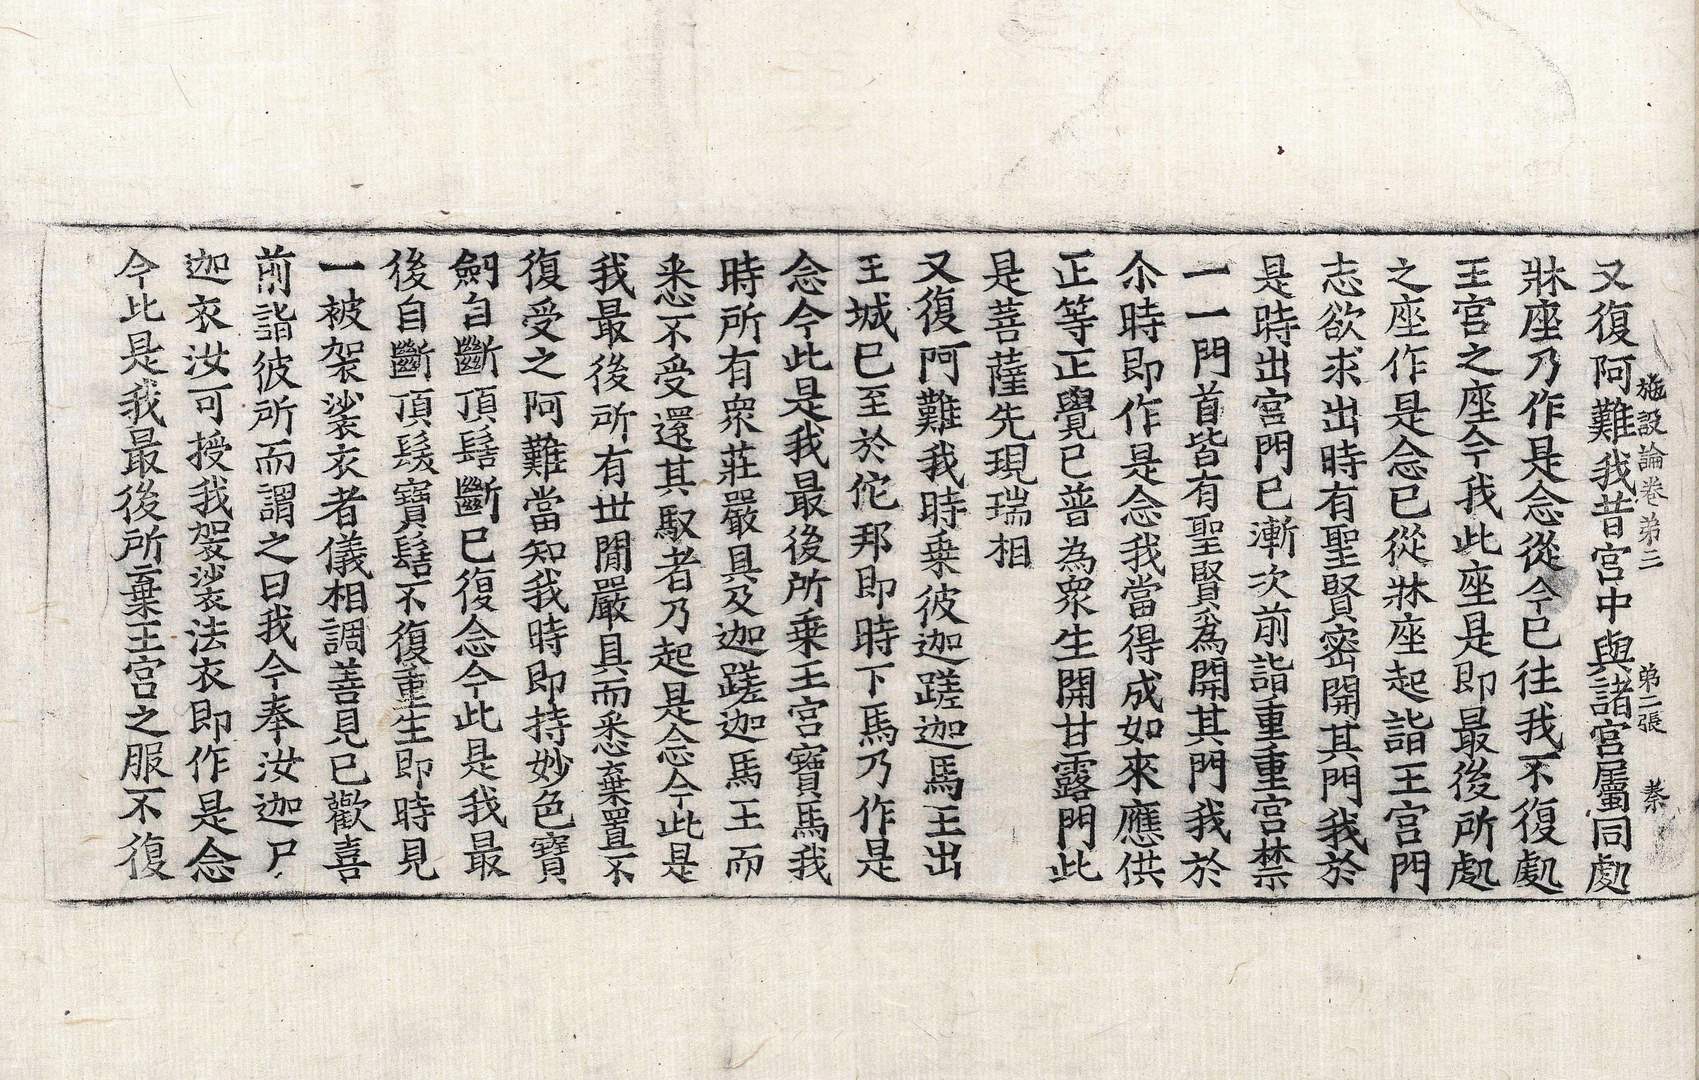 施設論卷第三 第二張 蓁
又復阿難我昔宮中與諸宮屬同處
牀座乃作是念從今已往我不復處
王宮之座今我此座是即最後所處
之座作是念已從牀座起詣王宮門
志欲求出時有聖賢密開其門我於
是時出宮門已漸次前詣重重宮禁
一一門首皆有聖賢為開其門我於
尒時即作是念我當得成如來應供
正等正覺已普為衆生開甘露門此
是菩薩先現瑞相
又復阿難我時乗彼迦蹉迦馬王出
王城已至於佗邦即時下馬乃作是
念今此是我最後所乗王宮寶馬我
時所有衆莊嚴具及迦蹉迦馬王而
悉不受還其馭者乃起是念今此是
我最後所有世間嚴具而悉棄置不
復受之阿難當知我時即持妙色寶
劒自斷頂髻斷已復念今此是我最
後自斷頂髮寶髻不復重生即時見
一被袈裟衣者儀相調善見已歡喜
前詣彼所而謂之曰我今奉汝迦尸
迦衣汝可授我袈裟法衣即作是念
今此是我最後所棄王宮之服不復